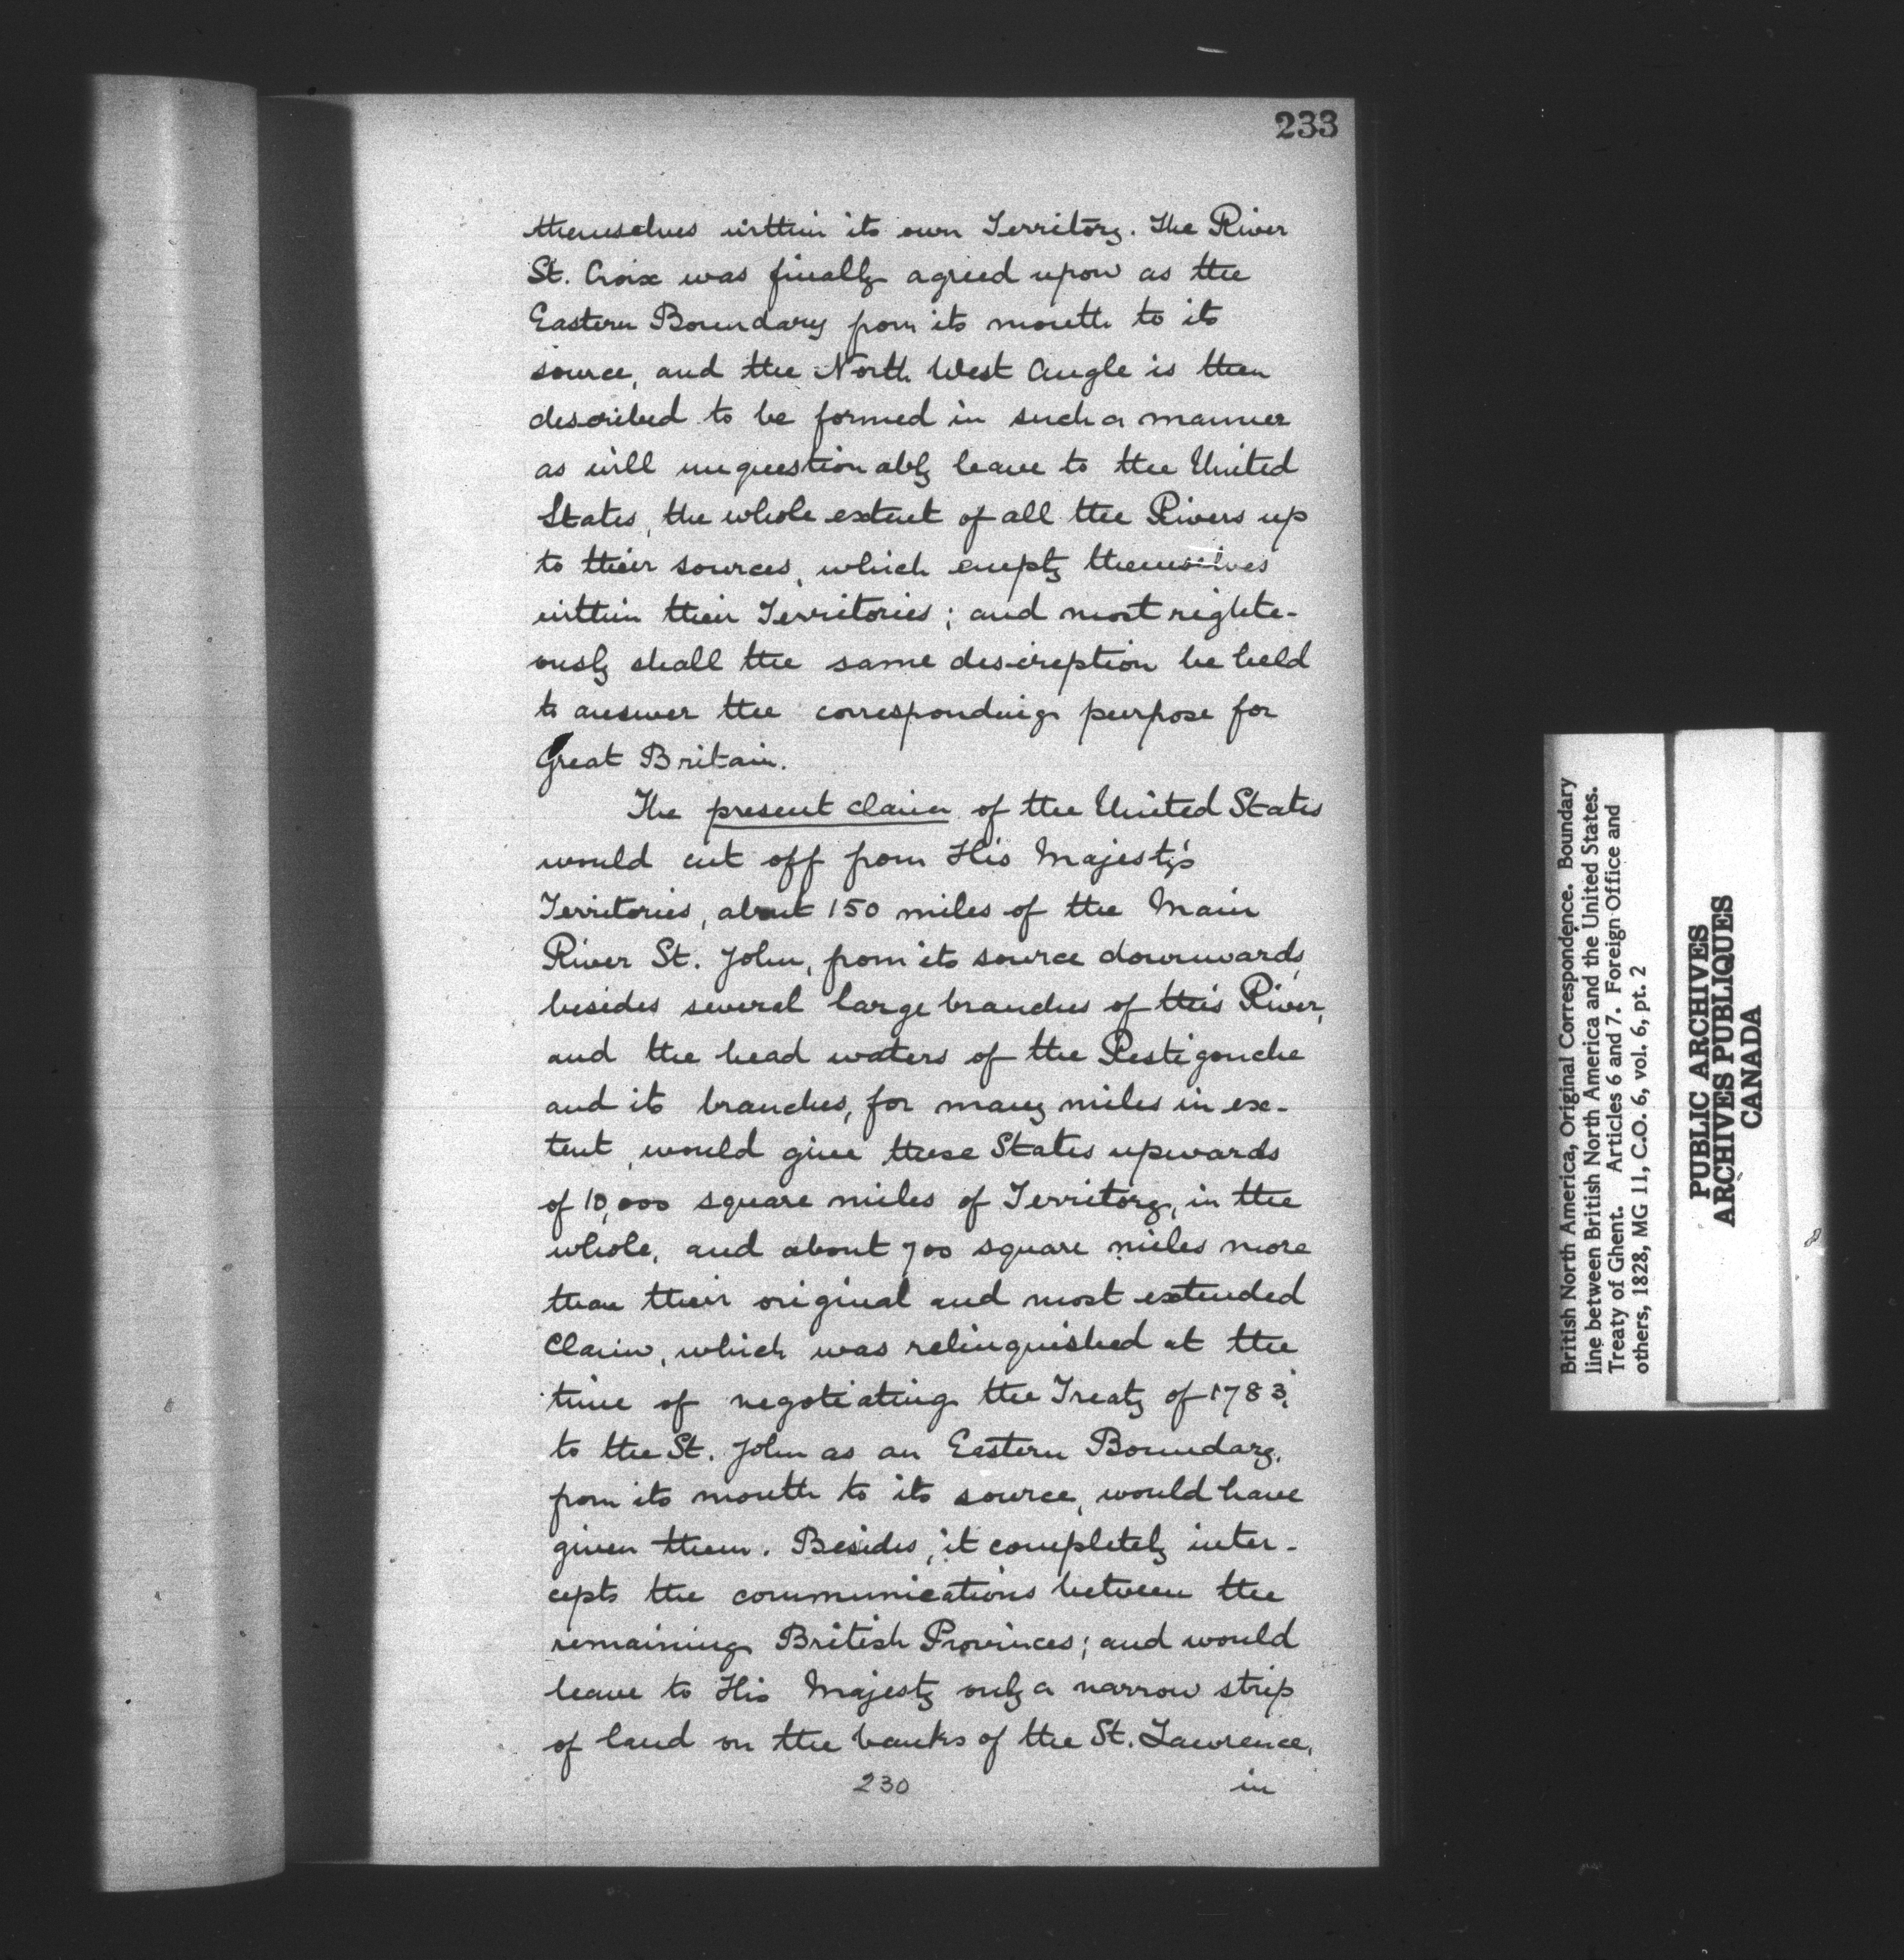 233
themselves within its own Territory. The River
St. Croix was finally agreed upon as the
Eastern Boundary from its mouth to its
source, and the North West Angle is then
described to be formed in such a manner
as will unquestionably leave to the United
States, the whole extent of all the Rivers up
to their sources, which empty themselves
within their Territories; and most righte-
ously shall the same descireption be held
to answer the corresponding purpose for
Great Britain.
The present claim of the United States
would cut off from His Majesty's
Territories, about 150 miles of the Main
River St. John, from its source downwards,
besides several large branches of this River,
and the head waters of the Restigouche
and its branches, for many miles in ex-
tent, would give these States upwards
of 10,000 square miles of Territory, in the
whole, and about 700 square miles more
than their original and most extended
Claim, which was relinquished at the
time of negotiating the Treaty of 1783,
to the St. John as an Eastern Boundary,
from its mouth to its source, would have
given them. Besides, it completely inter-
cepts the communications between the
remaining British Provinces; and would
leave to His Majesty only a narrow strip
of land on the banks of the St. Lawrence,
230 in
British North America, Original Correspondence. Boundary
line between British North America and the United States.
Treaty of Ghent. Articles 6 and 7. Foreign Office and
others, 1828, MG 11, C.O. 6, vol. 6, pt. 2
PUBLIC ARCHIVES
ARCHIVES PUBLIQUES
CANADA